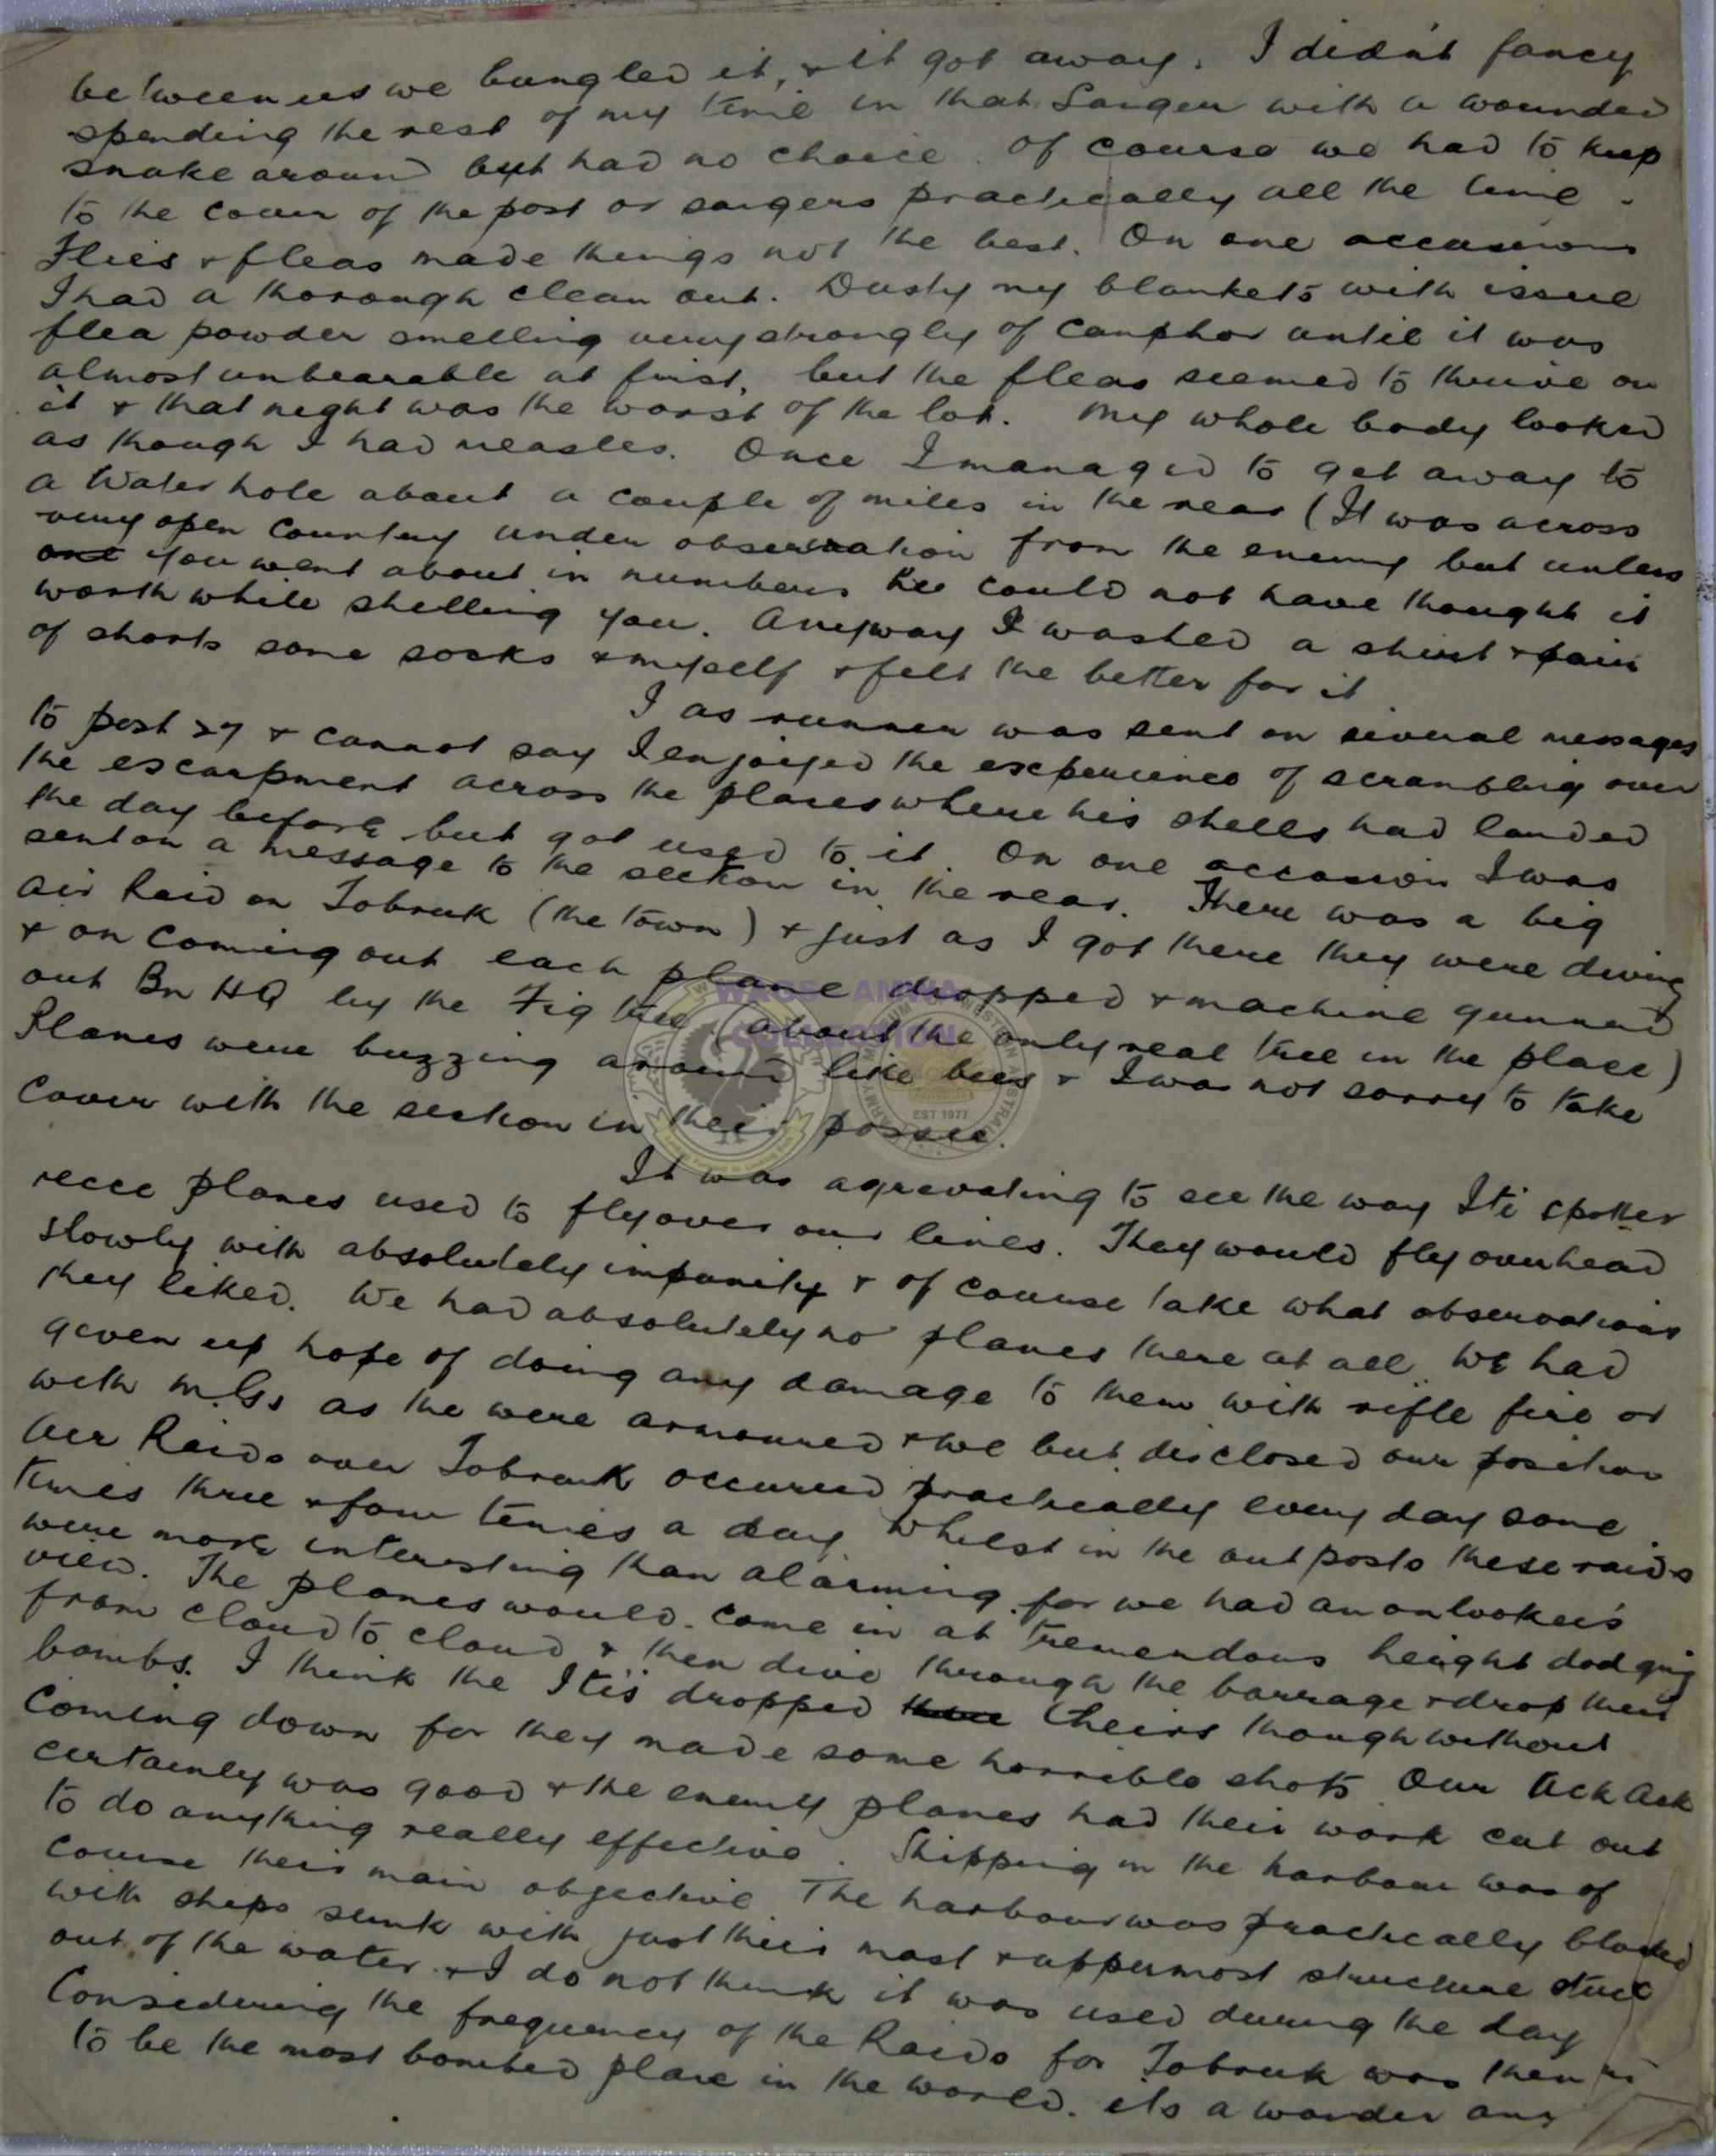 between us we bungled it, & it got away. I didn't fancy
spending the rest of my time in that Sanger with a wounded
snake around but had no choice. Of course we had to keep
to the cover of the post or sangers practically all the time.
Flies & fleas made things not the best. On one occasions
I had a thorough clean out. Dusty my blankets with issue
flea powder smelling very strongly of camphor until it was
almost unbearable at first, but the fleas seemed to thrive on
it & that night was the worst of the lot. My whole body looked
as though I had measles. Once I managed to get away to
a Water hole about a couple of miles in the rear (It was across
very open country under observation from the enemy but unless
you went about in numbers he could not have thought it
worth while shelling you. Anyway I washed a shirt & pair
of shorts some socks & myself & felt the better for it
I as runner was sent on several messages
to post 27 & cannot say I enjoyed the experience of scrambling over
the escarpment across the places where his shells had landed
the day before but got used to it. On one occasion I was
sent on a message to the section in the rear. There was a big
Air Raid on Tobruk (the town) & just as I got there they were diving
& on coming out each plane dropped & machine gunned
out Bn HQ by the Fig tree (about the only real tree in the place)
Planes were buzzing around like bees & I was not sorry to take
cover with the section in their possie.
It was agrevating to see the way Iti spotter
recce planes used to fly over our lines. They would fly overhead
slowly with absolutely impunity & of course take what observations
they liked. We had absolutely no planes there at all. We had
given up hope of doing any damage to them with rifle fire or
with M.Gs as the were armoured & we but disclosed our position
Air Raids over Tobruk occured practically every day some
times three & four times a day. Whilst in the outposts these raids
were more interesting than alarming for we had an onlooker's
view. The planes would come in at tremendous height dodging
from cloud to cloud & then dive through the barrage & drop their
bombs. I think the Iti's dropped theirs though without
coming down for they made some horrible shots. Our Ack Ack
certainly was good & the enemy planes had their work cut out
to do anything really effective. Shipping in the harbour was of
course their main objective. The harbour was practically blocked
with ships sunk with just their mast & uppermost structure
out of the water & I do not think it was used during the day
Considering the frequency of the Raids for Tobruk was then
to be the most bombed place in the world. its a wonder any
WAGS AMWA
COLLECTION
EST 1977